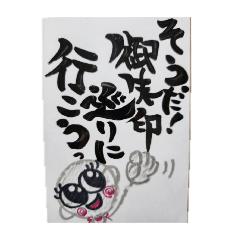 そうだ!
御朱印
巡りに
行こうっ